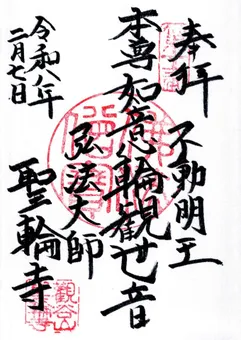 奉拝
不動明王
本尊如意輪観世音
弘法大師
聖輪寺
令和八年
二月七日
佛法僧寶
観谷山